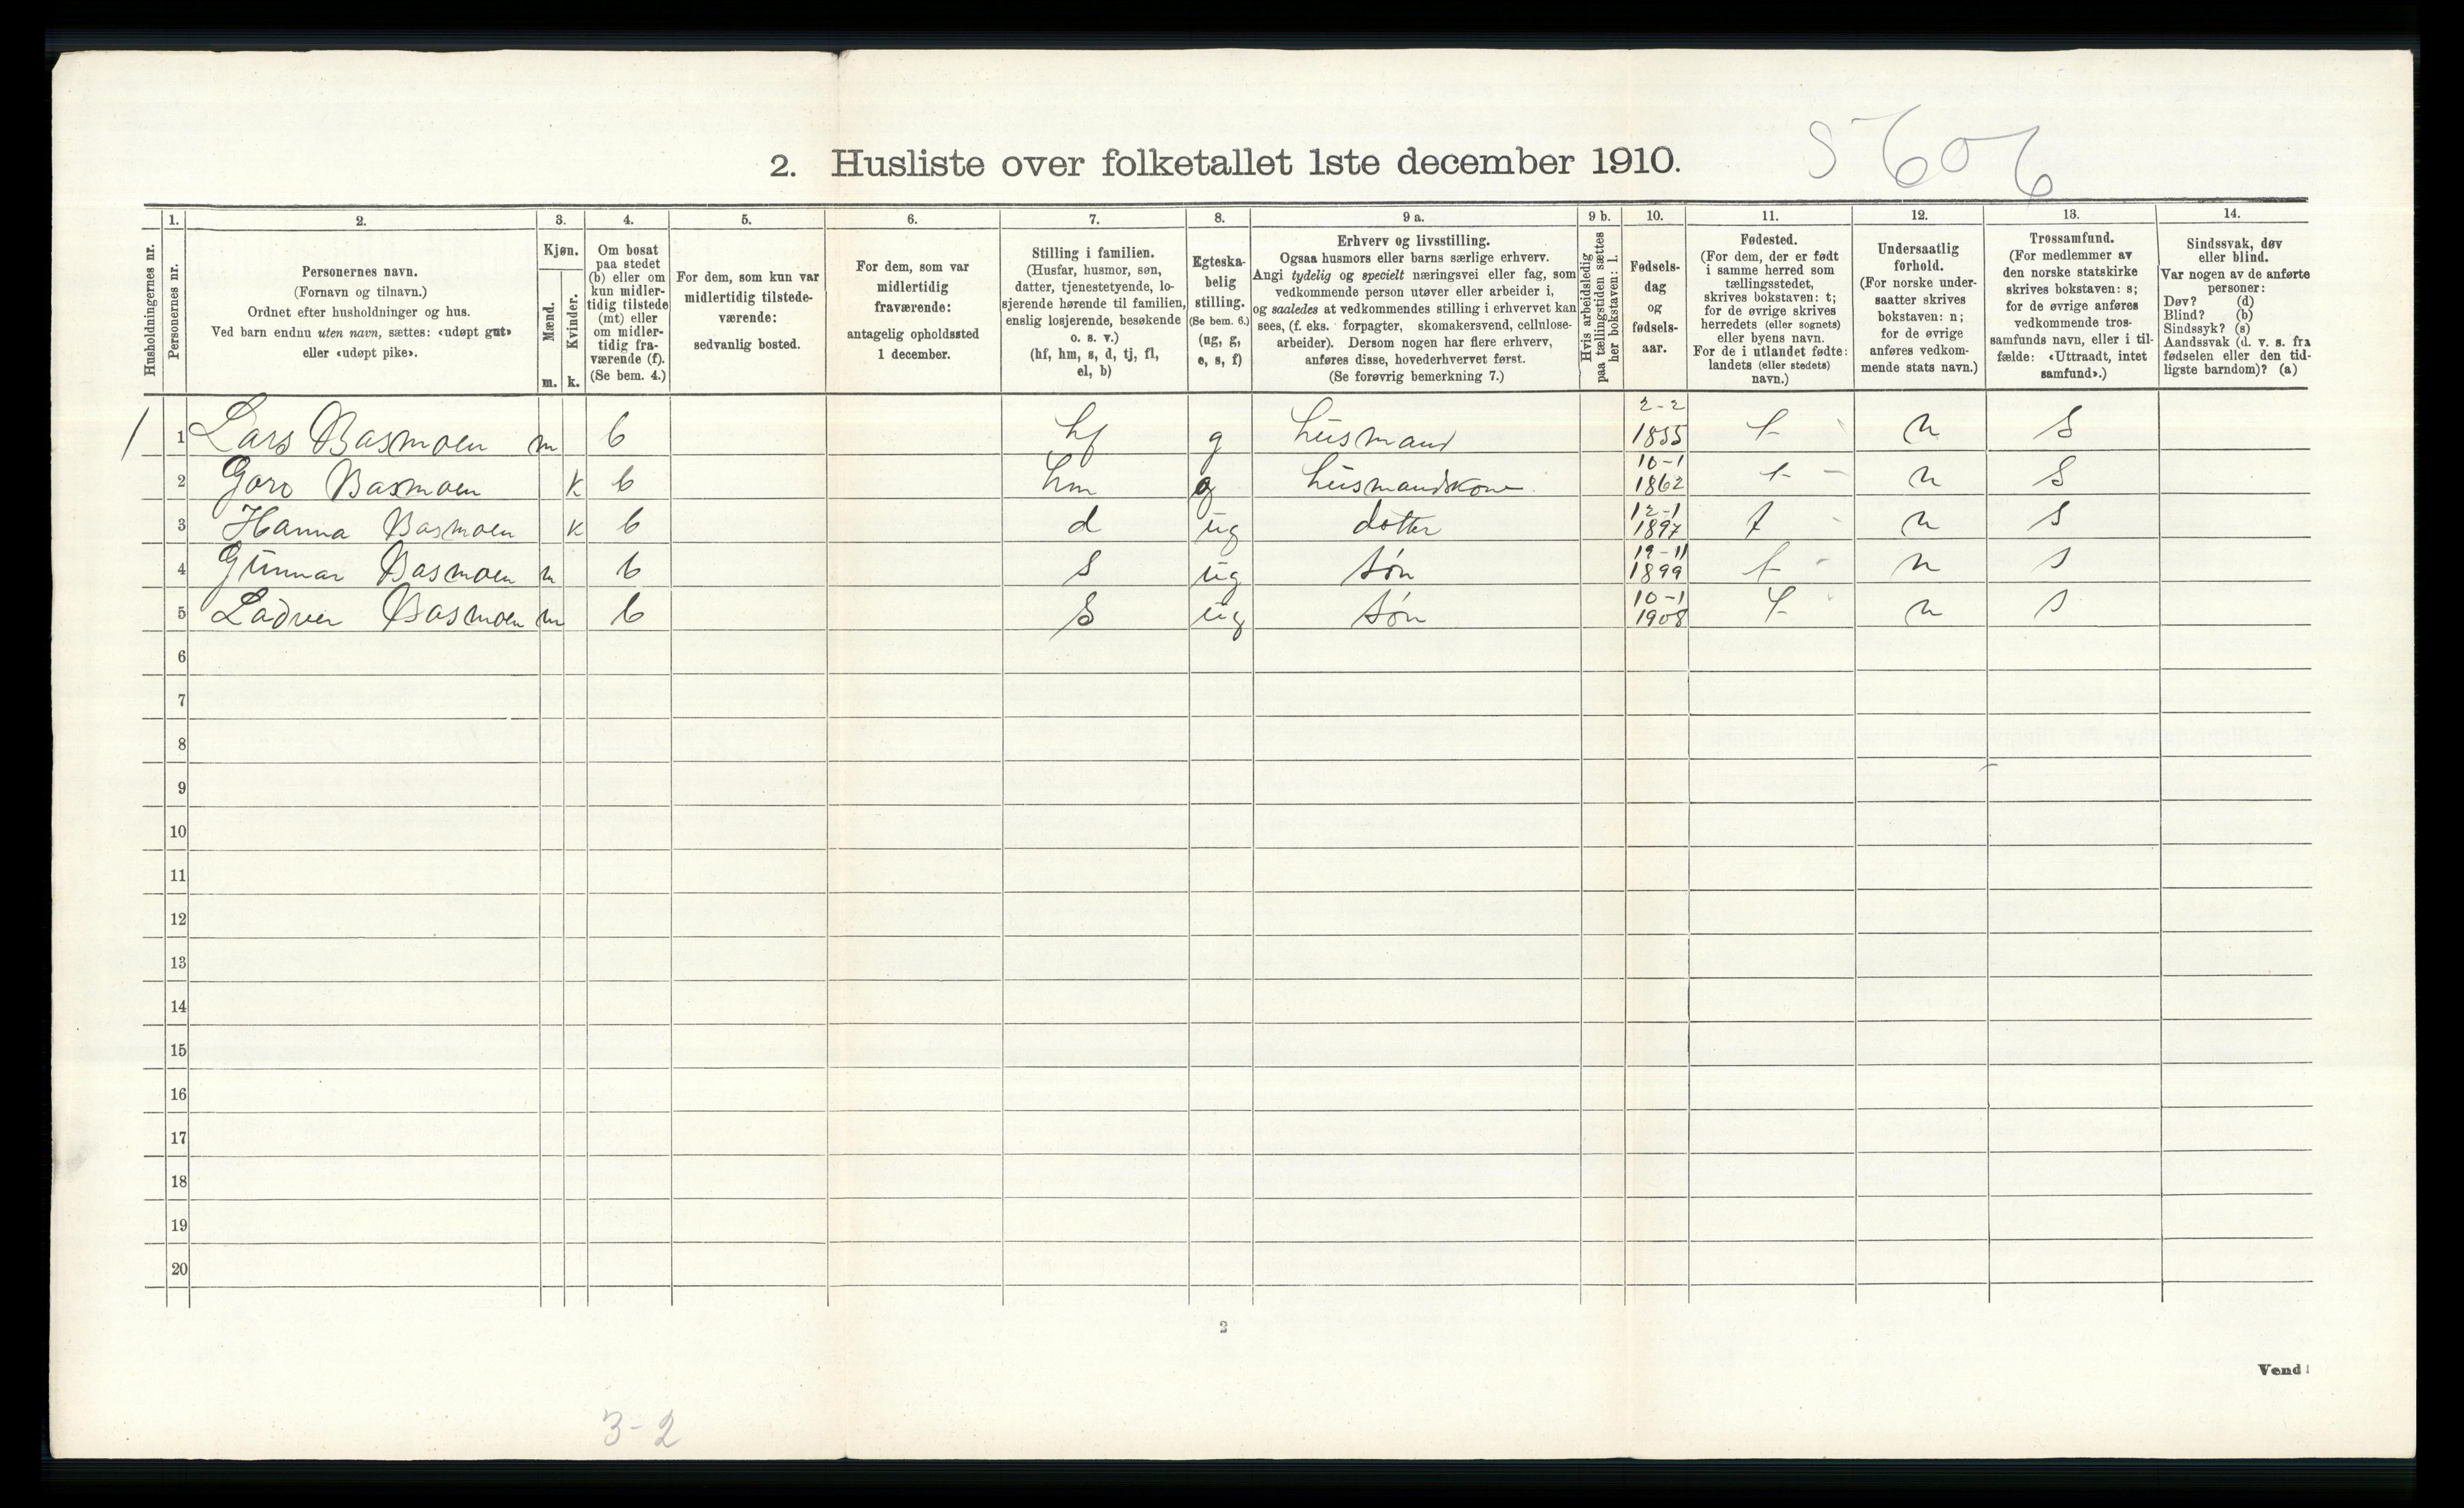 S 606
2. Husliste over folketallet 1ste december 1910.
Husholdningernes nr.
1. Personernes nr.
2. Personernes navn.
(Fornavn og tilnavn.)
Ordnet efter husholdninger og hus.
Ved barn endnu uten navn, sættes: «udøpt gut»
eller «udøpt pike».
3. Kjøn.
Mænd. m.
Kvinder. k.
4. Om bosat
paa stedet
(b) eller om
kun midler-
tidig tilstede
(mt) eller
om midler-
tidig fra-
værende (f).
(Se bem. 4.)
5. For dem, som kun var
midlertidig tilstede-
værende:
sedvanlig bosted.
6. For dem, som var
midlertidig
fraværende:
antagelig opholdssted
1 december.
7. Stilling i familien.
(Husfar, husmor, søn,
datter, tjenestetyende, lo-
sjerende hørende til familien,
enslig losjerende, besøkende
o. s. v.)
(hf, hm, s, d, tj, fl,
el, b)
8. Egteska-
belig
stilling.
(Se bem. 6.)
(ug, g,
e, s, f)
9 a. Erhverv og livsstilling.
Ogsaa husmors eller barns særlige erhverv.
Angi tydelig og specielt næringsvei eller fag, som
vedkommende person utøver eller arbeider i,
og saaledes at vedkommendes stilling i erhvervet kan
sees, (f. eks. forpagter, skomakersvend, cellulose-
arbeider). Dersom nogen har flere erhverv,
anføres disse, hovederhvervet først.
(Se forøvrig bemerkning 7.)
9 b. Hvis arbeidsledig
paa tællingstiden sættes
her bokstaven: l.
10. Fødsels-
dag
og
fødsels-
aar.
11. Fødested.
(For dem, der er født
i samme herred som
tællingsstedet,
skrives bokstaven: t;
for de øvrige skrives
herredets (eller sognets)
eller byens navn.
For de i utlandet fødte:
landets (eller stedets)
navn.)
12. Undersaatlig
forhold.
(For norske under-
saatter skrives
bokstaven: n;
for de øvrige
anføres vedkom-
mende stats navn.)
13. Trossamfund.
(For medlemmer av
den norske statskirke
skrives bokstaven: s;
for de øvrige anføres
vedkommende tros-
samfunds navn, eller i til-
fælde: «Uttraadt, intet
samfund».)
14. Sindssvak, døv
eller blind.
Var nogen av de anførte
personer:
Døv? (d)
Blind? (b)
Sindssyk? (s)
Aandssvak (d. v. s. fra
fødselen eller den tid-
ligste barndom)? (a)
1 1 Lars Basmoen m b hf g husmand 2-2 1855 t n S
2 Goro Basmoen k b hm g husmandskone 10-1 1862 t n S
3 Hanna Basmoen k b d ug dotter 12-1 1897 t n S
4 Gunnar Basmoen m b s ug søn 19-11 1899 t n s
5 Ladver Basmoen m b s ug søn 10-1 1908 t n s
6
7
8
9
10
11
12
13
14
15
16
17
18
19
20
2
Vend!
3-2